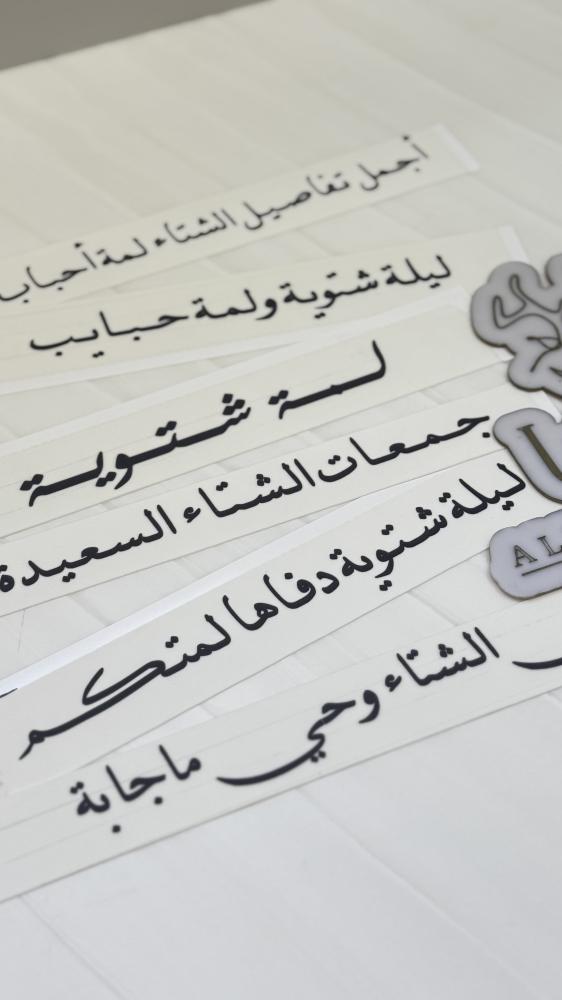 أجمل تفاصيل الشتاء لمة أحباب
ليلة شتوية ولمة حبايب
لمة شتوية
جمعات الشتاء السعيدة
ليلة شتوية دفاها لمتكم
الشتاء وحي ماجابة
AL